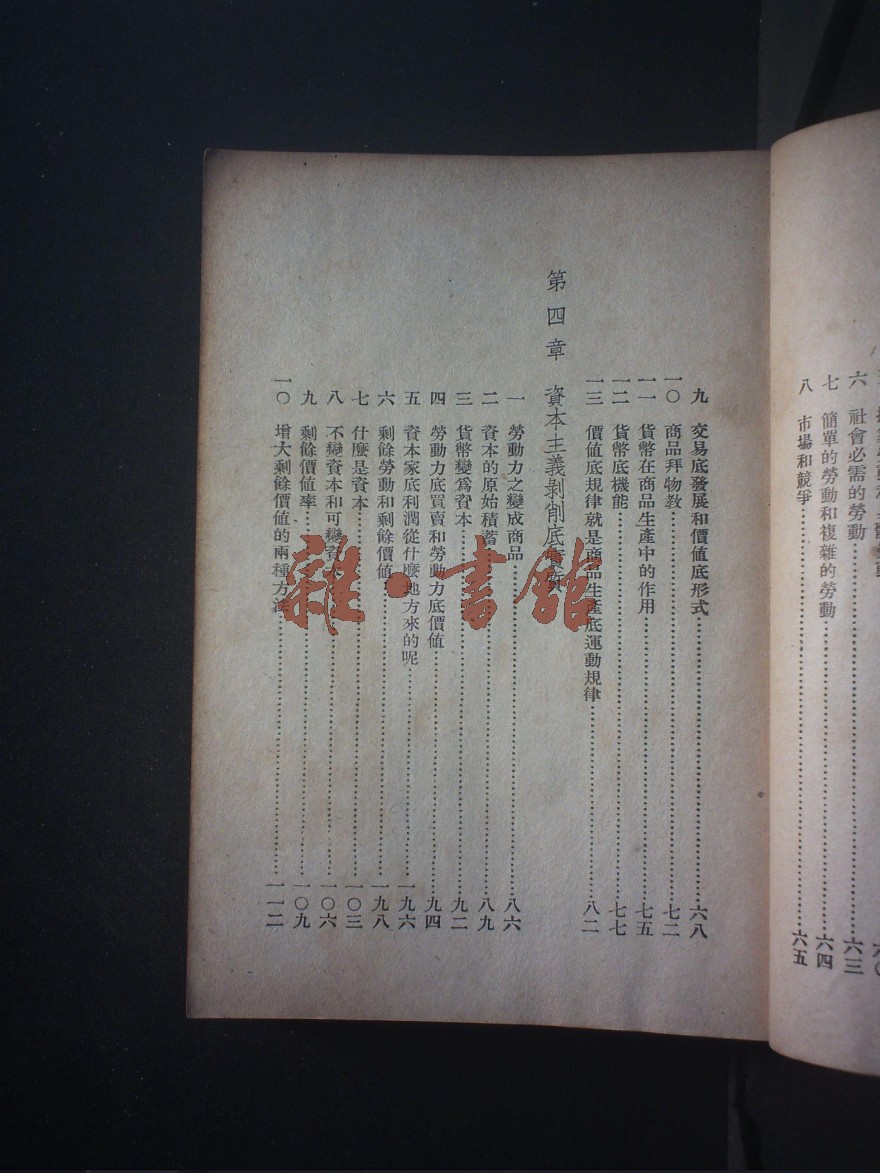 六 社會必需的勞動……六三
七 簡單的勞動和複雜的勞動……六四
八 市場和競爭……六五
九 交易底發展和價值底形式……六八
一〇 商品拜物教……七二
一一 貨幣在商品生產中的作用……七五
一二 貨幣底機能……七七
一三 價值底規律就是商品生產底運動規律……八二
第四章 資本主義剝削底
一 勞動力之變成商品……八六
二 資本的原始積蓄……八九
三 貨幣變爲資本……九二
四 勞動力底買賣和勞動力底價值……九四
五 資本家底利潤從什麼地方來的呢……一九六
六 剩餘勞動和剩餘價值……一九八
七 什麼是資本……一〇三
八 不變資本和可變資本……一〇六
九 剩餘價值率……一〇九
一〇 增大剩餘價值的兩種方法……一一二
雜·書館